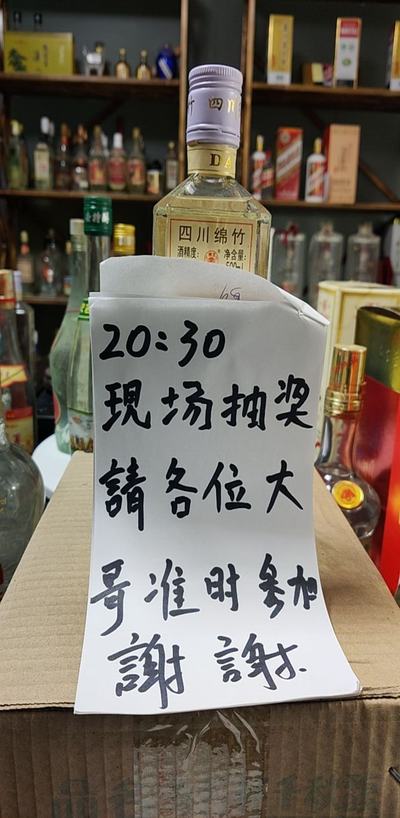 四川
DA
四川绵竹
酒精度:
净含量:
500ml
20:30
現场抽奖
請各位大
哥准时参加
謝謝.